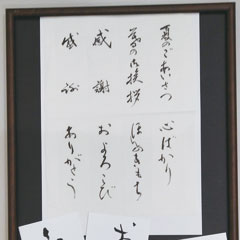 夏のごあいさつ
暑中御挨拶
感謝
感謝
心ばかり
ほんのきもち
およろこび
ありがとう
お